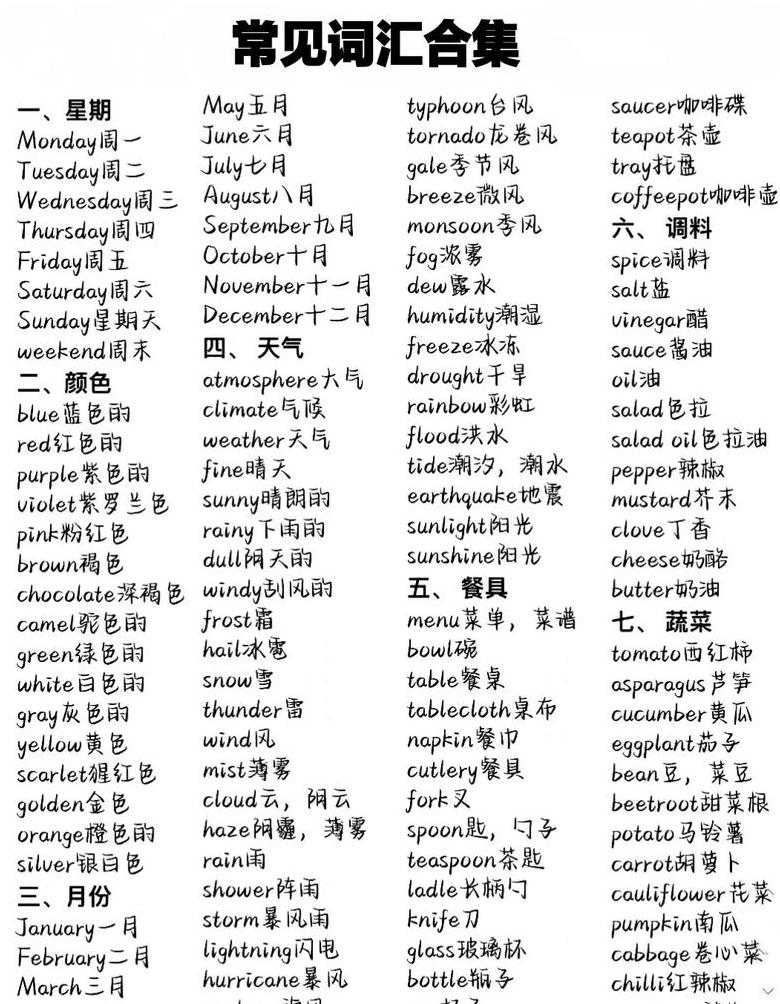 常见词汇合集
一、星期
Monday周一
Tuesday周二
Wednesday周三
Thursday周四
Friday周五
Saturday周六
Sunday星期天
weekend周末
二、颜色
blue蓝色的
red红色的
purple紫色的
violet紫罗兰色
pink粉红色
brown褐色
chocolate深褐色
camel驼色的
green绿色的
white白色的
gray灰色的
yellow黄色
scarlet猩红色
golden金色
orange橙色的
silver银白色
三、月份
January一月
February二月
March三月
May五月
June六月
July七月
August八月
September九月
October十月
November十一月
December十二月
四、天气
atmosphere大气
climate气候
weather天气
fine晴天
sunny晴朗的
rainy下雨的
dull阴天的
windy刮风的
frost霜
hail冰雹
snow雪
thunder雷
wind风
mist薄雾
cloud云，阴云
haze阴霾，薄雾
rain雨
shower阵雨
storm暴风雨
lightning闪电
hurricane暴风
typhoon台风
tornado龙卷风
gale季节风
breeze微风
monsoon季风
fog浓雾
dew露水
humidity潮湿
freeze冰冻
drought干旱
rainbow彩虹
flood洪水
tide潮汐，潮水
earthquake地震
sunlight阳光
sunshine阳光
五、餐具
menu菜单，菜谱
bowl碗
table餐桌
tablecloth桌布
napkin餐巾
cutlery餐具
fork叉
spoon匙，勺子
teaspoon茶匙
ladle长柄勺
knife刀
glass玻璃杯
bottle瓶子
saucer咖啡碟
teapot茶壶
tray托盘
coffeepot咖啡壶
六、调料
spice调料
salt盐
vinegar醋
sauce酱油
oil油
salad色拉
salad oil色拉油
pepper辣椒
mustard芥末
clove丁香
cheese奶酪
butter奶油
七、蔬菜
tomato西红柿
asparagus芦笋
cucumber黄瓜
eggplant茄子
bean豆，菜豆
beetroot甜菜根
potato马铃薯
carrot胡萝卜
cauliflower花菜
pumpkin南瓜
cabbage卷心菜
chilli红辣椒